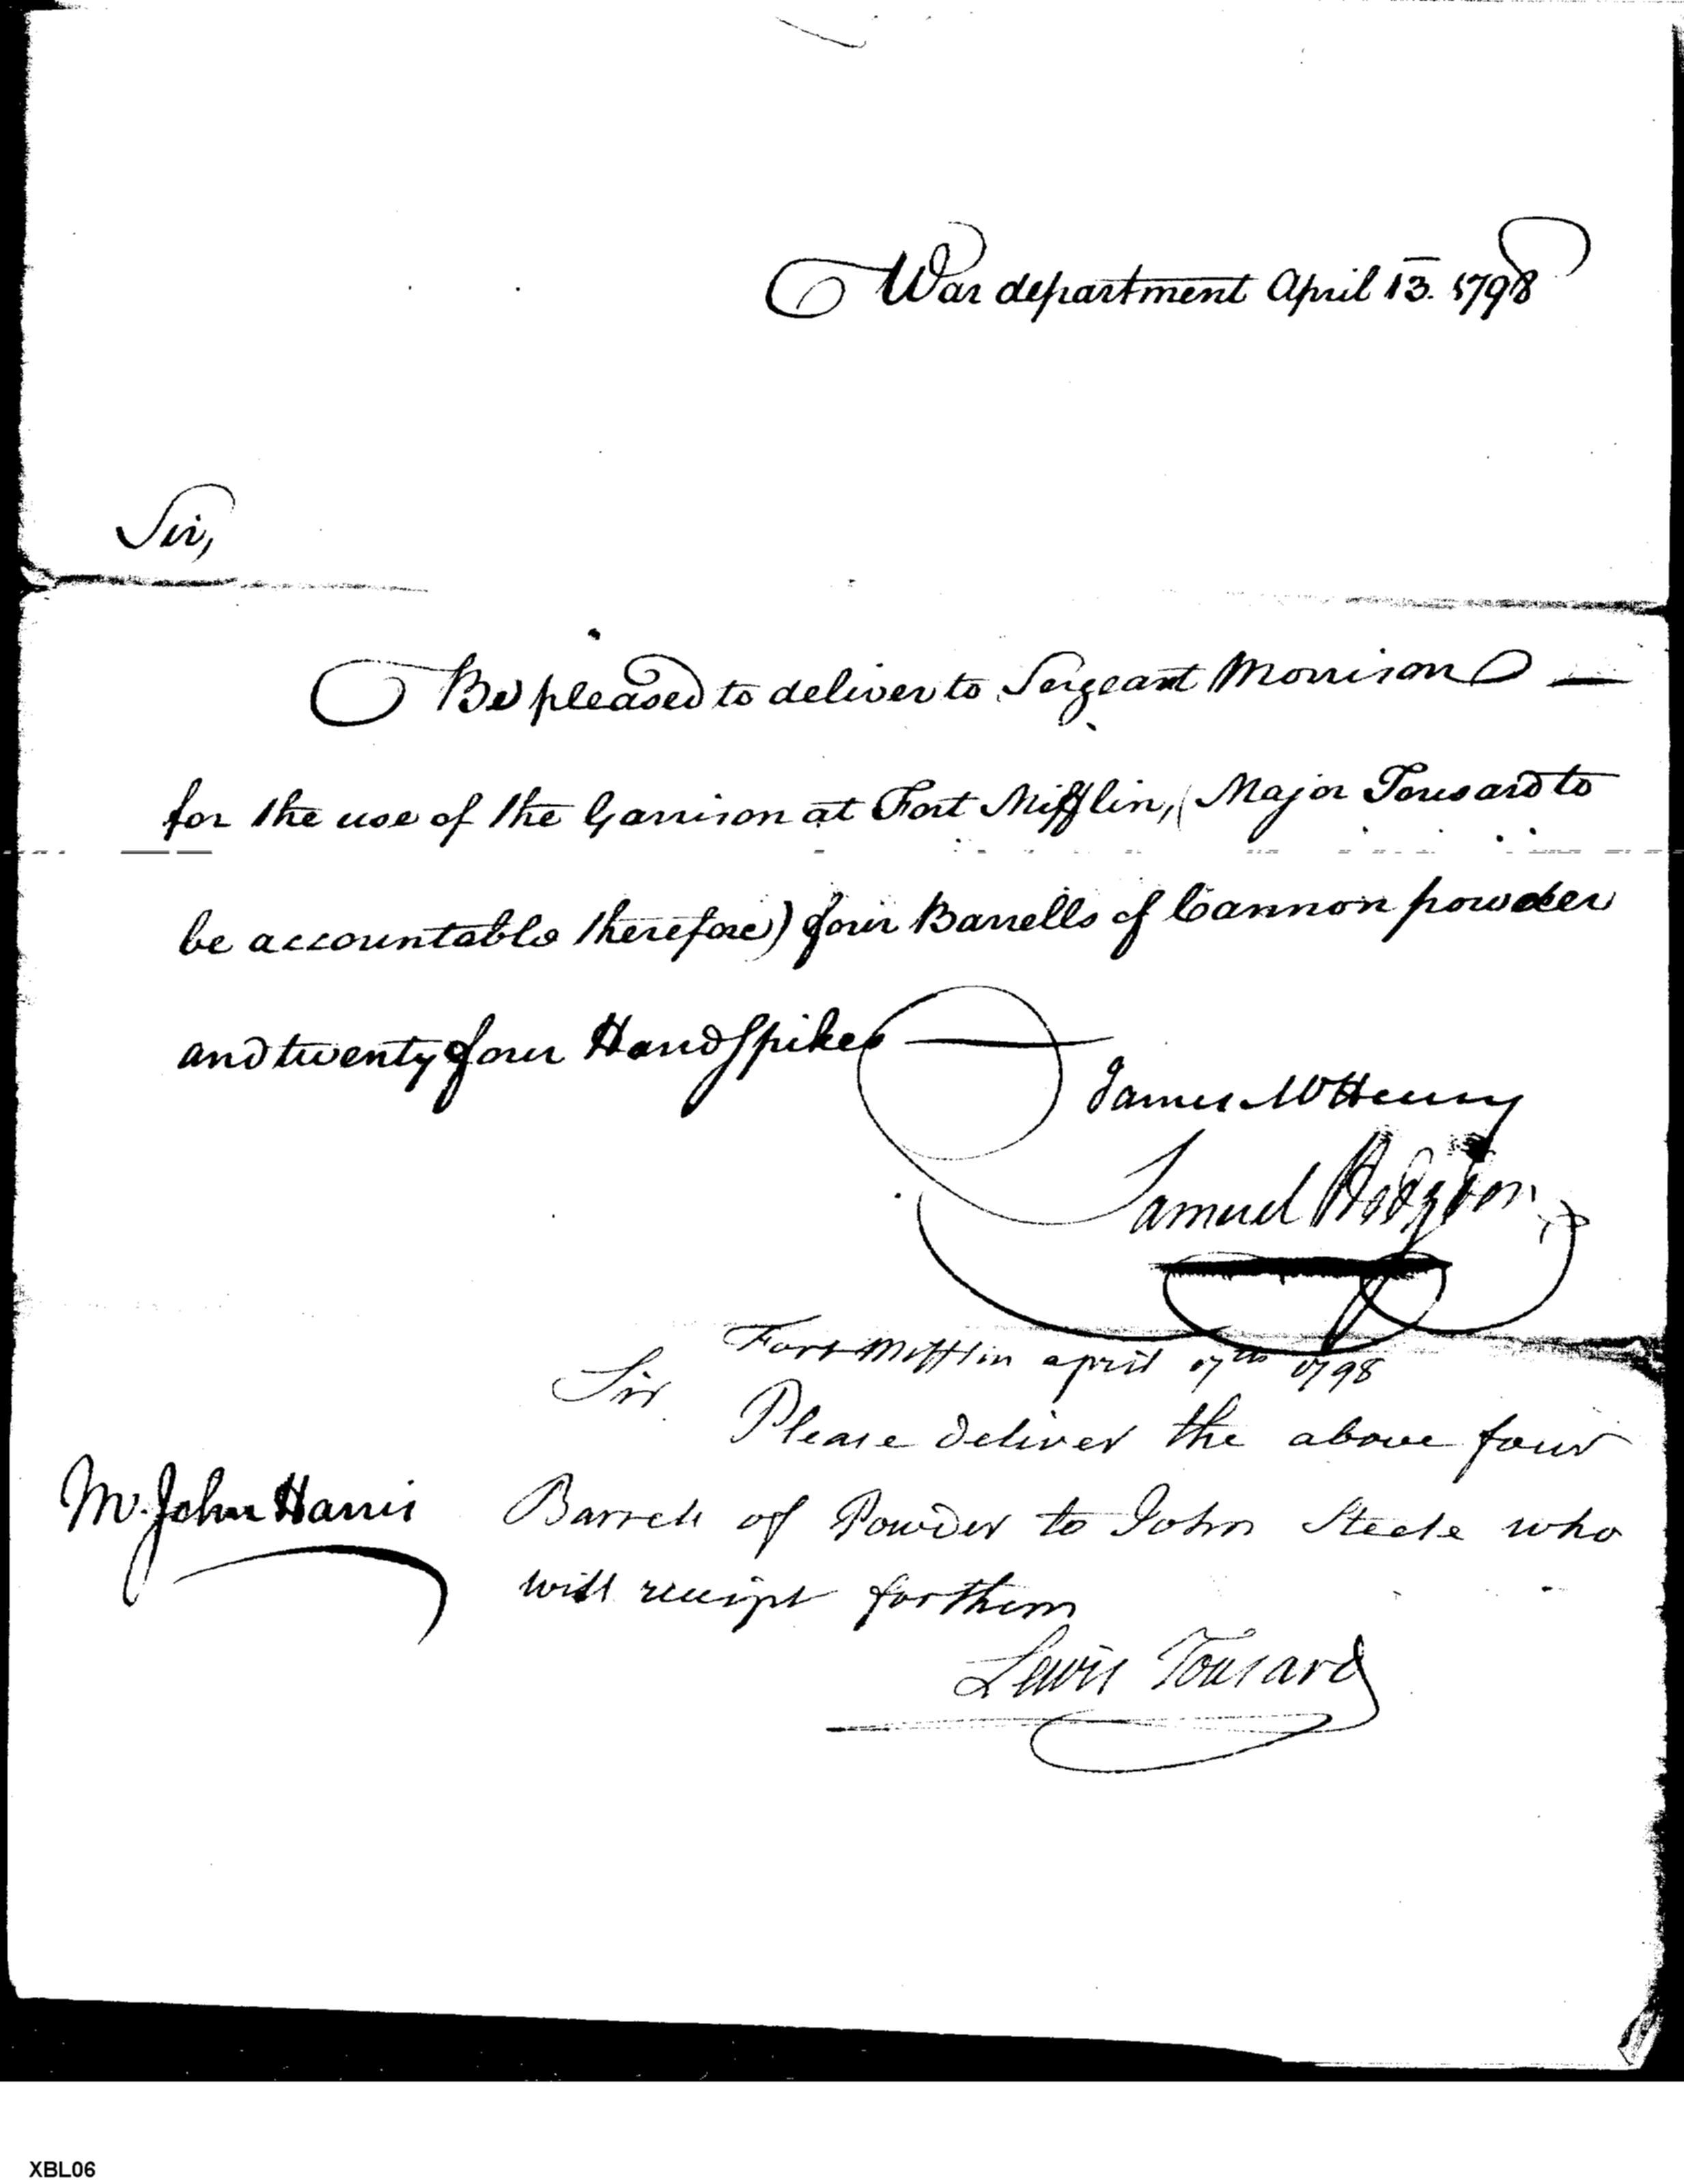 War department April 13. 1798
Sir,
Be pleased to deliver to Sergeant Morrison —
for the use of the Garrison at Fort Mifflin, (Major Tousard to
be accountable therefore) four Barrells of Cannon powder
and twenty four Hand Spikes —
James McHenry
Samuel Hodgdon
Fort Mifflin april 17th 1798
Sir
Please deliver the above four
Mr. John Harris
Barrels of Powder to John Steele who
will receipt for them
Lewis Tousard
XBL06